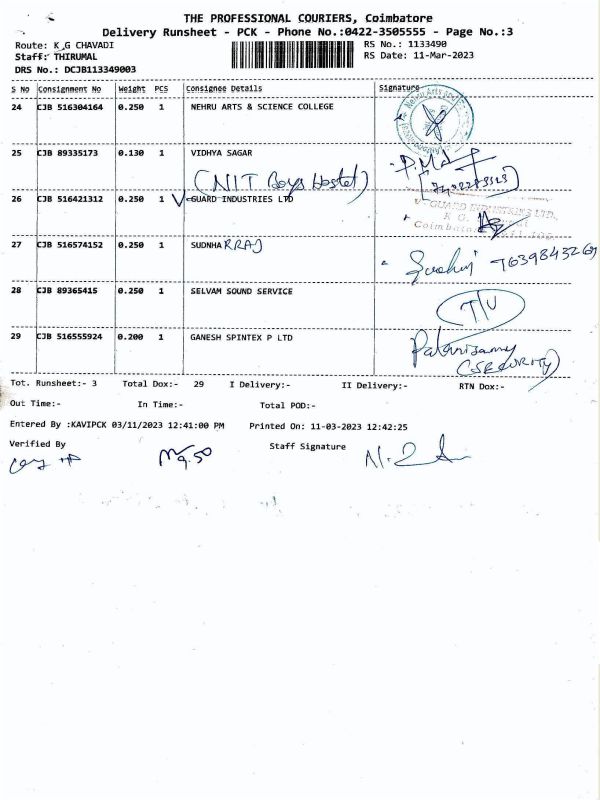 THE PROFESSIONAL COURIERS, Coimbatore
Delivery Runsheet - PCK - Phone No.:0422-3505555 - Page No.:3
Route: K G CHAVADI
RS No.: 1133490
Staff: THIRUMAL
RS Date: 11-Mar-2023
DRS No.: DCJB113349003
S No Consignment No Weight PCS Consignee Details Signature
24 CJB 516304164 0.250 1 NEHRU ARTS & SCIENCE COLLEGE
Nehru Arts and
25 CJB 89335173 0.130 1 VIDHYA SAGAR
(NIT Boys Hostel)
26 CJB 516421312 0.250 1 V-GUARD INDUSTRIES LTD
V-GUARD INDUSTRIES LTD.,
K G
Coimbatore
27 CJB 516574152 0.250 1 SUDNHARRAJ
28 CJB 89365415 0.250 1 SELVAM SOUND SERVICE
29 CJB 516555924 0.200 1 GANESH SPINTEX P LTD
Palanisamy
(SECURITY)
Tot. Runsheet:- 3 Total Dox:- 29 I Delivery:- II Delivery:- RTN Dox:-
Out Time:- In Time:- Total POD:-
Entered By :KAVIPCK 03/11/2023 12:41:00 PM Printed On: 11-03-2023 12:42:25
Verified By Staff Signature
9.50